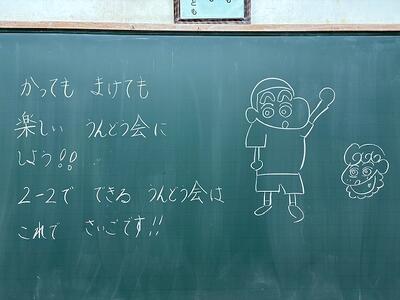 かっても まけても
楽しい うんどう会に
しよう!!
2-2で できる うんどう会は
これで さいごです!!